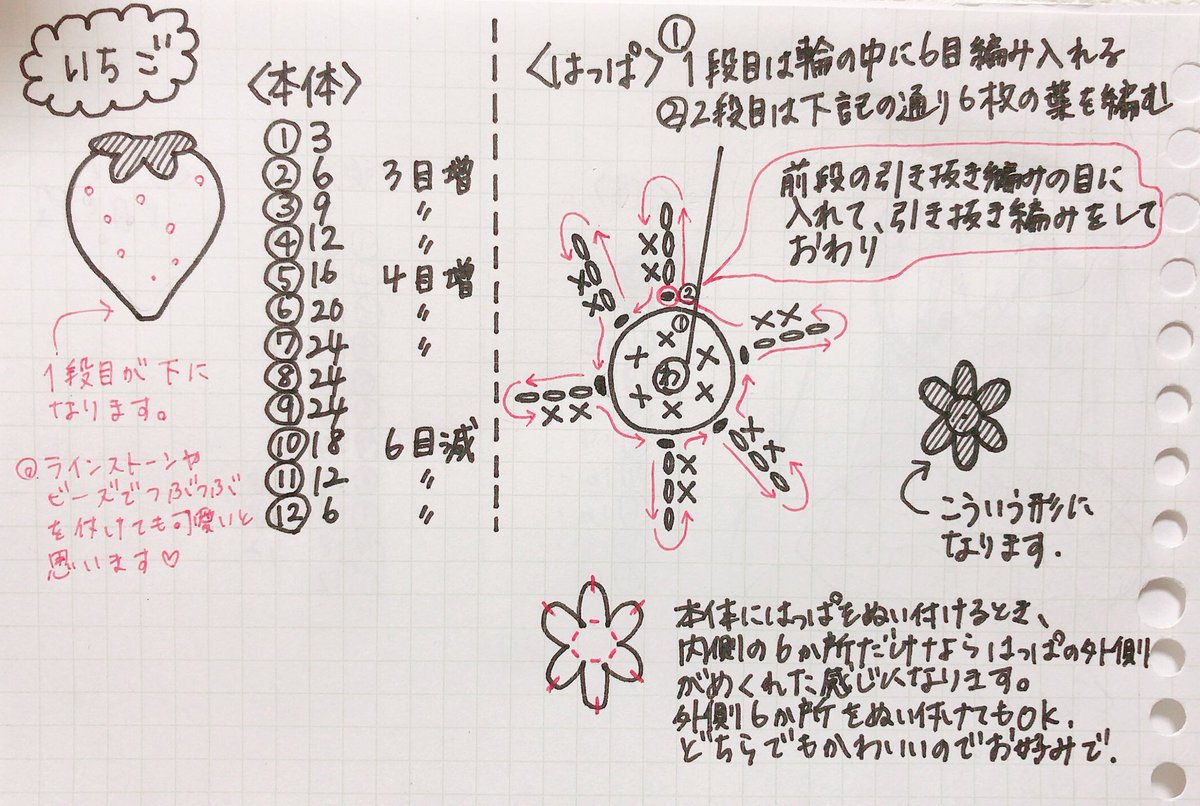 いちご
〈本体〉
① 3
② 6 3目増
③ 9 〃
④ 12 〃
⑤ 16 4目増
⑥ 20 〃
⑦ 24 〃
⑧ 24
⑨ 24
⑩ 18 6目減
⑪ 12 〃
⑫ 6 〃
1段目が下に
なります。
@ラインストーンや
ビーズでつぶつぶ
を付けても可愛いと
思います♡
〈はっぱ〉①1段目は輪の中に6目編み入れる
②2段目は下記の通り6枚の葉を編む
前段の引き抜き編みの目に
入れて、引き抜き編みをして
おわり
②
①
わ
こういう形に
なります.
本体にはっぱをぬい付けるとき、
内側の6か所だけならはっぱの外側
がめくれた感じになります。
外側6か所をぬい付けてもOK.
どちらでもかわいいのでお好みで.